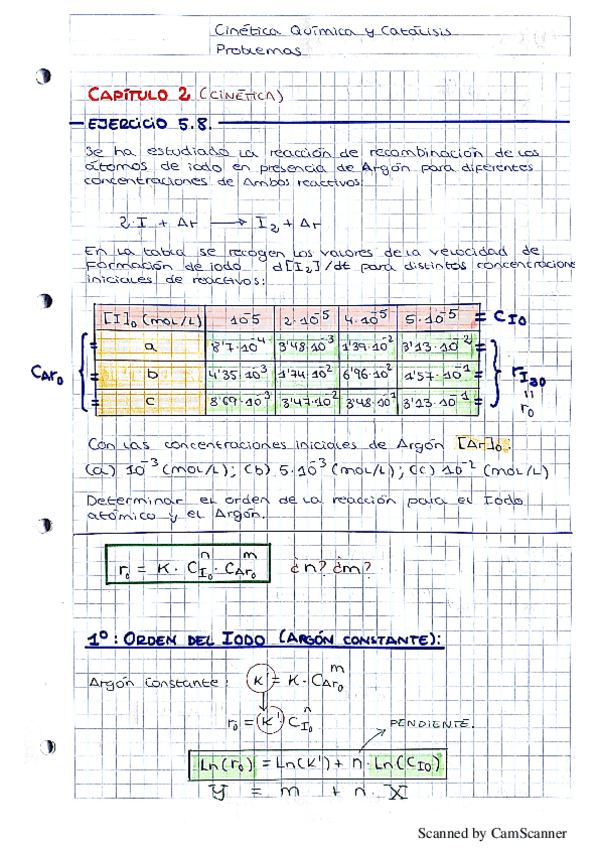 Cinética Química y Catálisis
Problemas
CAPÍTULO 2 (CINÉTICA)
EJERCICIO 5.8.
Se ha estudiado la reacción de recombinación de los
átomos de iodo en presencia de Argón para diferentes
concentraciones de Ambos reactivos:
2·I + Ar → I₂ + Ar
En la tabla se recogen los valores de la velocidad de
Formación de iodo d[I₂]/dt para distintas concentracione
iniciales de reactivos:
[I]₀ (mol/L) 10⁻⁵ 2·10⁻⁵ 4·10⁻⁵ 5·10⁻⁵ = C_I0
a 8'7·10⁻⁴ 3'48·10⁻³ 1'39·10⁻² 3'13·10⁻²
C_Ar₀ b 4'35·10⁻³ 1'74·10⁻² 6'96·10⁻² 1'57·10⁻¹ r_I20
c 8'69·10⁻³ 3'47·10⁻² 3'48·10⁻¹ 3'13·10⁻¹ = r₀
Con las concentraciones iniciales de Argón [Ar]₀:
(a) 10⁻³ (mol/L); (b) 5·10⁻³ (mol/L); (c) 10⁻² (mol/L)
Determinar el orden de la reacción para el Iodo
atómico y el Argón.
r₀ = K · C_I₀ⁿ · C_Ar₀ᵐ ¿n? ¿m?
1º: ORDEN DEL IODO (ARGÓN CONSTANTE):
Argón constante: K' = K · C_Ar₀ᵐ
r₀ = K' C_I₀ⁿ
PENDIENTE.
Ln(r₀) = Ln(K') + n · Ln(C_I0)
y = m + n · X
Scanned by CamScanner